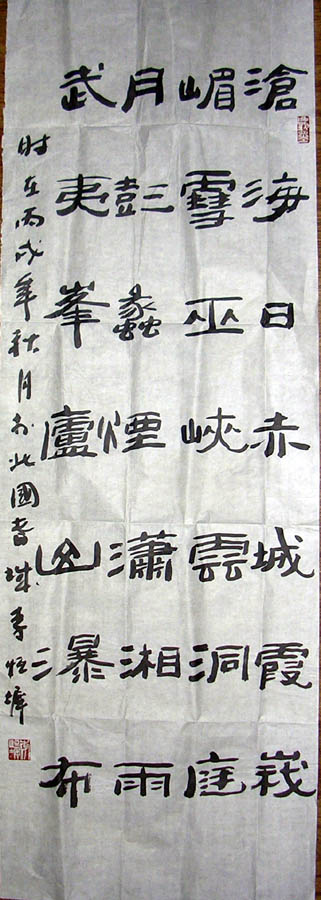 滄海日赤城霞峨
嵋雪巫峽雲洞庭
月彭蠡煙瀟湘雨
武夷峯廬山瀑布
时在丙戌年秋月於北國城李恒